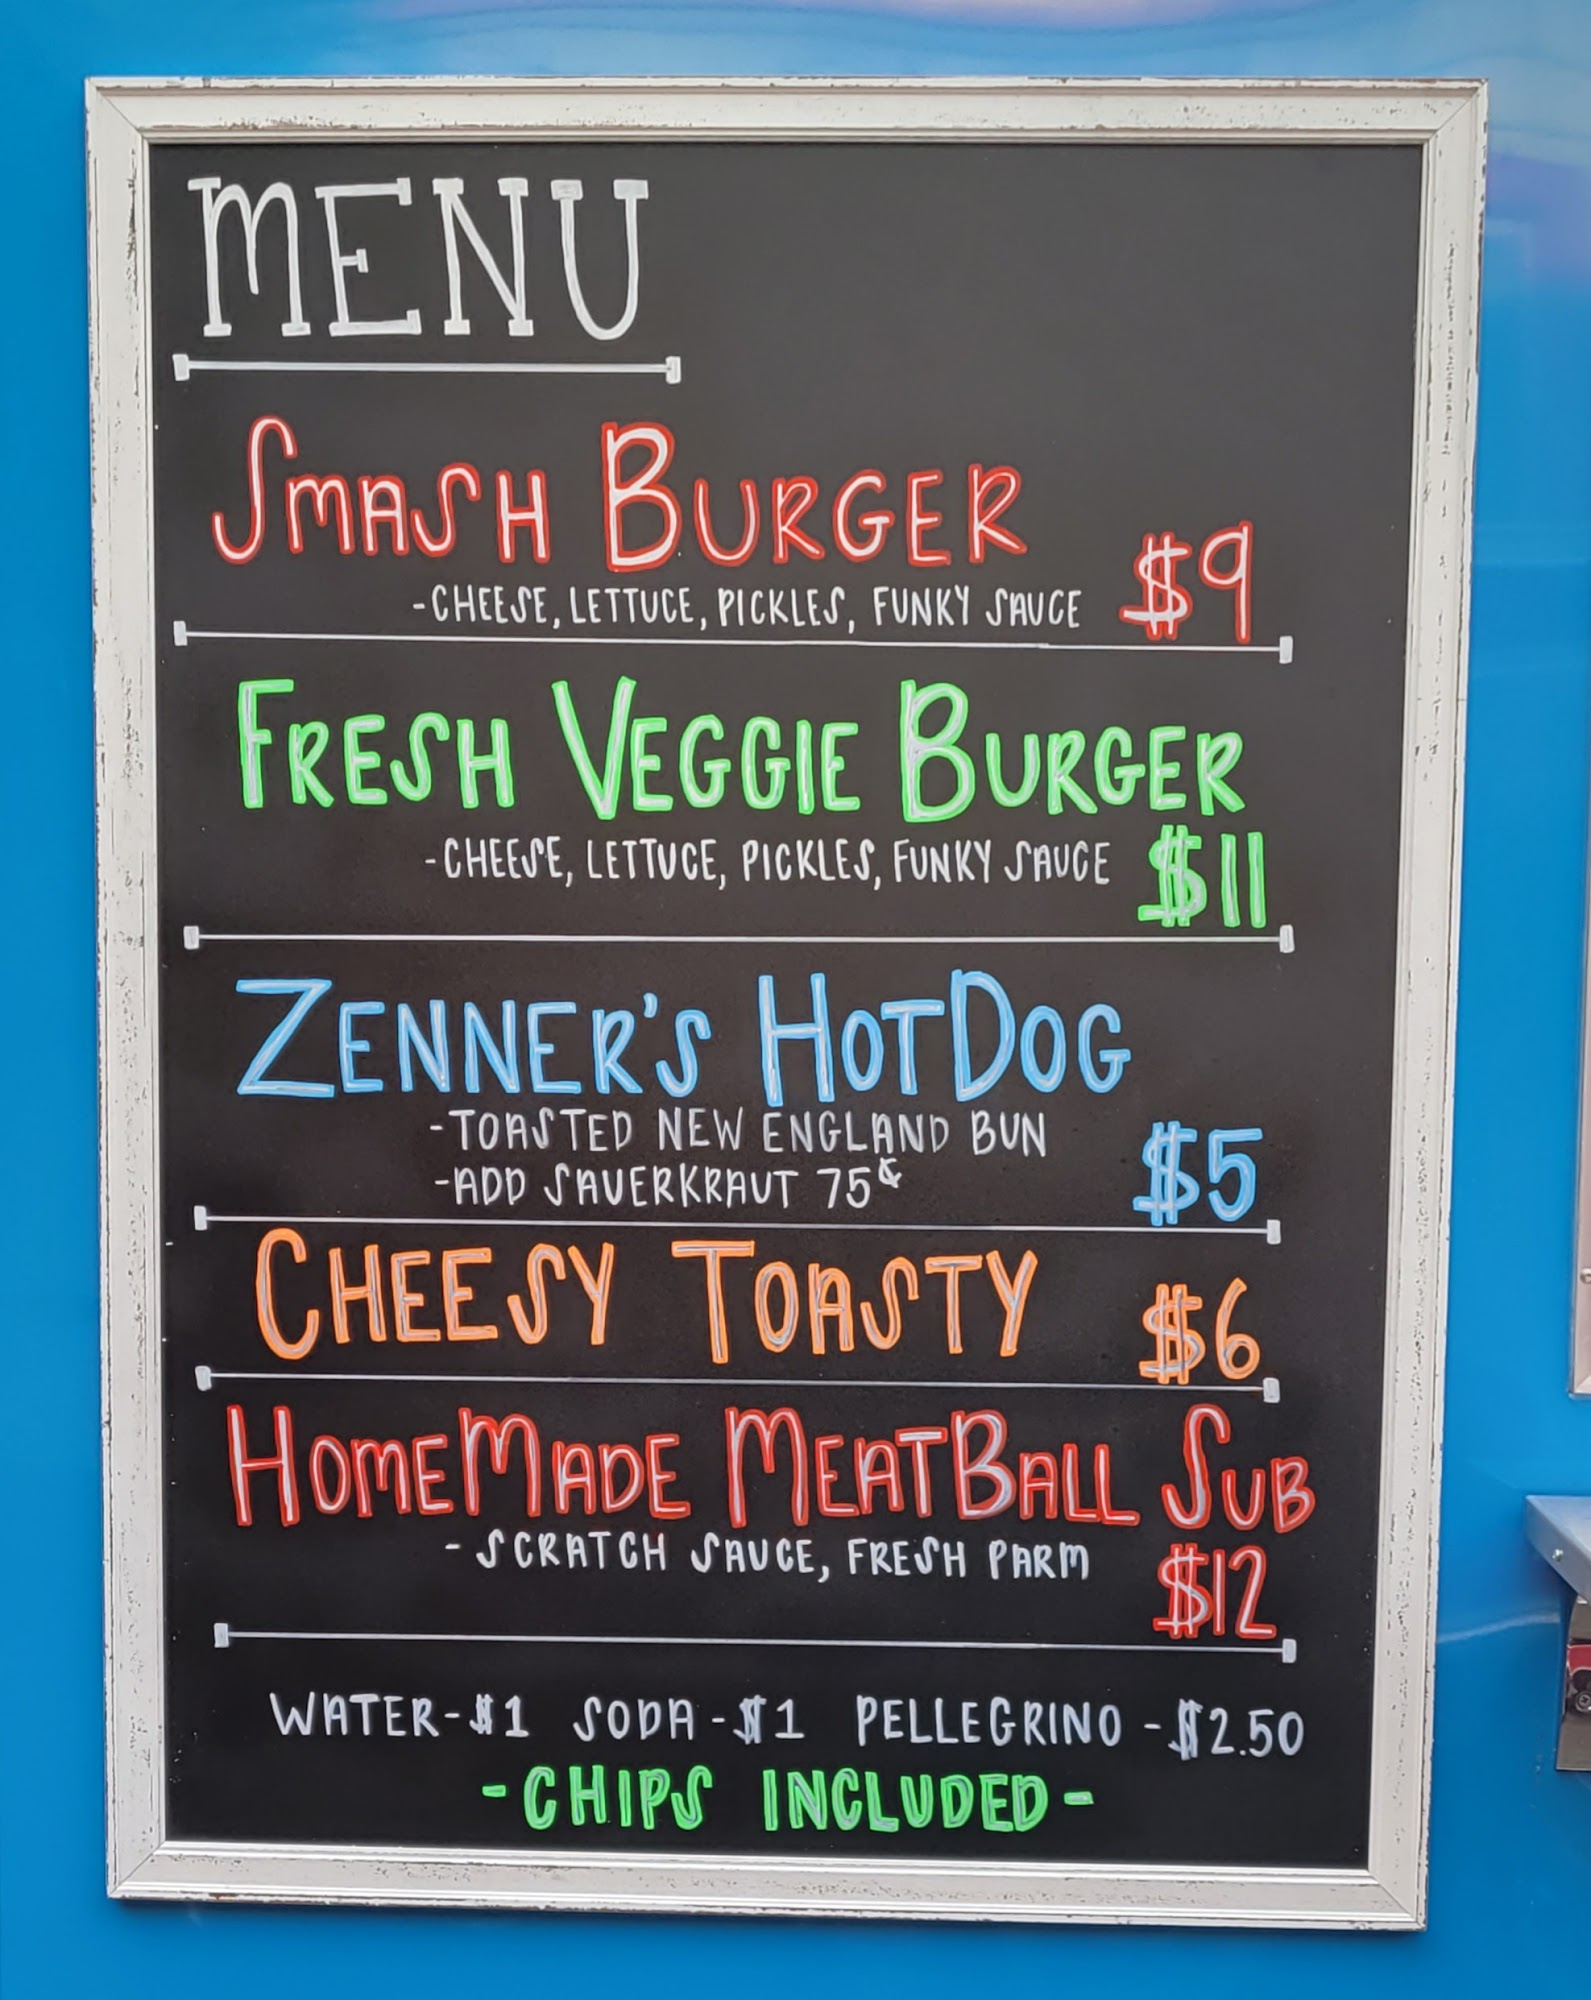 MENU
SMASH BURGER
-CHEESE, LETTUCE, PICKLES, FUNKY SAUCE $9
FRESH VEGGIE BURGER
-CHEESE, LETTUCE, PICKLES, FUNKY SAUCE $11
ZENNER'S HOTDOG
-TOASTED NEW ENGLAND BUN
-ADD SAUERKRAUT 75¢ $5
CHEESY TOASTY $6
HOMEMADE MEATBALL SUB
- SCRATCH SAUCE, FRESH PARM $12
WATER-$1 SODA-$1 PELLEGRINO -$2.50
-CHIPS INCLUDED-